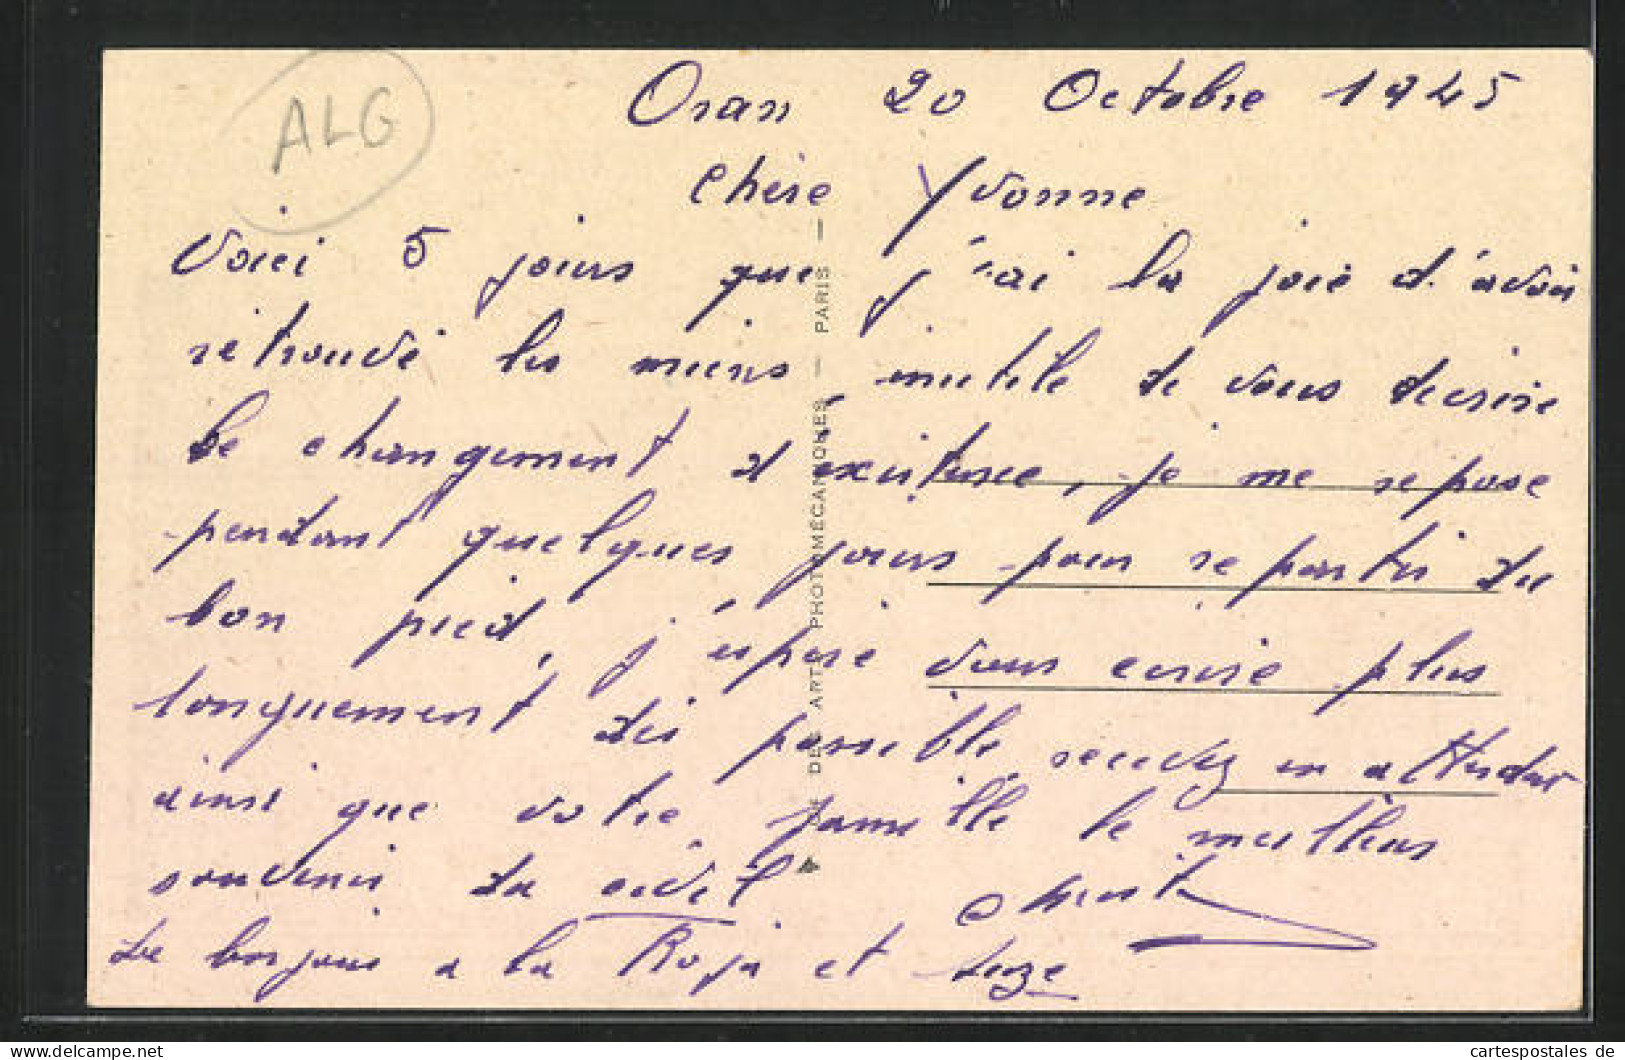 ALG
Oran 20 Octobre 1945
Chère Yvonne
Voici 5 jours que j'ai la joie d'avoir
retrouvé les miens, inutile de vous decrire
le changement d'existence, je me repose
pendant quelques jours pour repartir du
bon pied, j'espere vous ecrire plus
longuement dès possible, recevez en attendant
ainsi que votre famille le meilleur
souvenir du civil
Le bonjour a la Roja et
DES ARTS PHOTOMÉCANIQUES — PARIS —
cartespostales de
https://www.delcampe.net